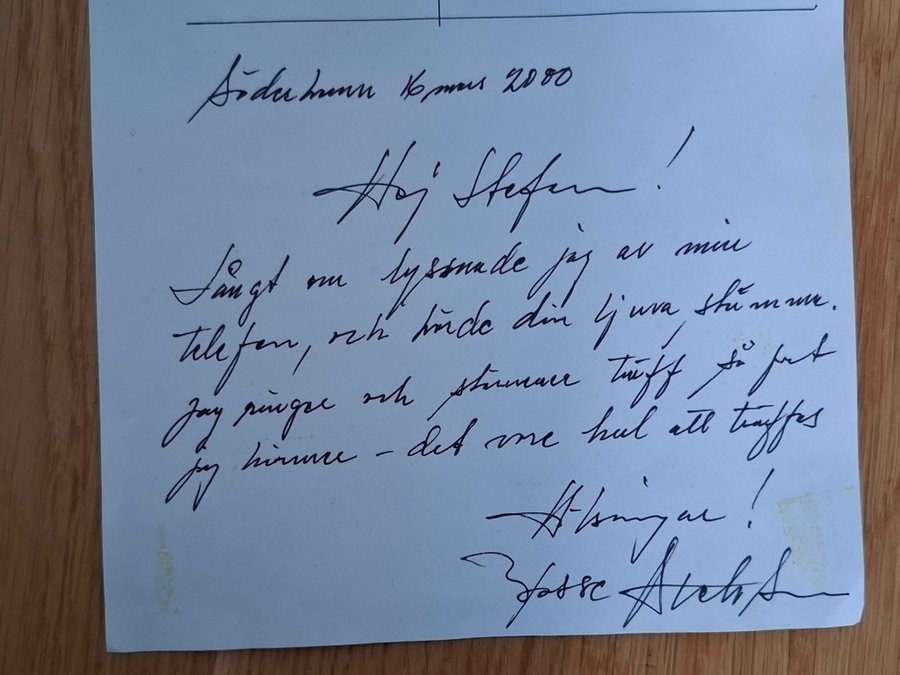 Söderhamn 16 mars 2000
Hej Stefan!
Långt om lyssnade jag av min
telefon, och hörde din ljuva stämma.
Jag ringer och stämmer träff så fort
jag hinner – det vore kul att träffas
Hälsningar!
Hasse